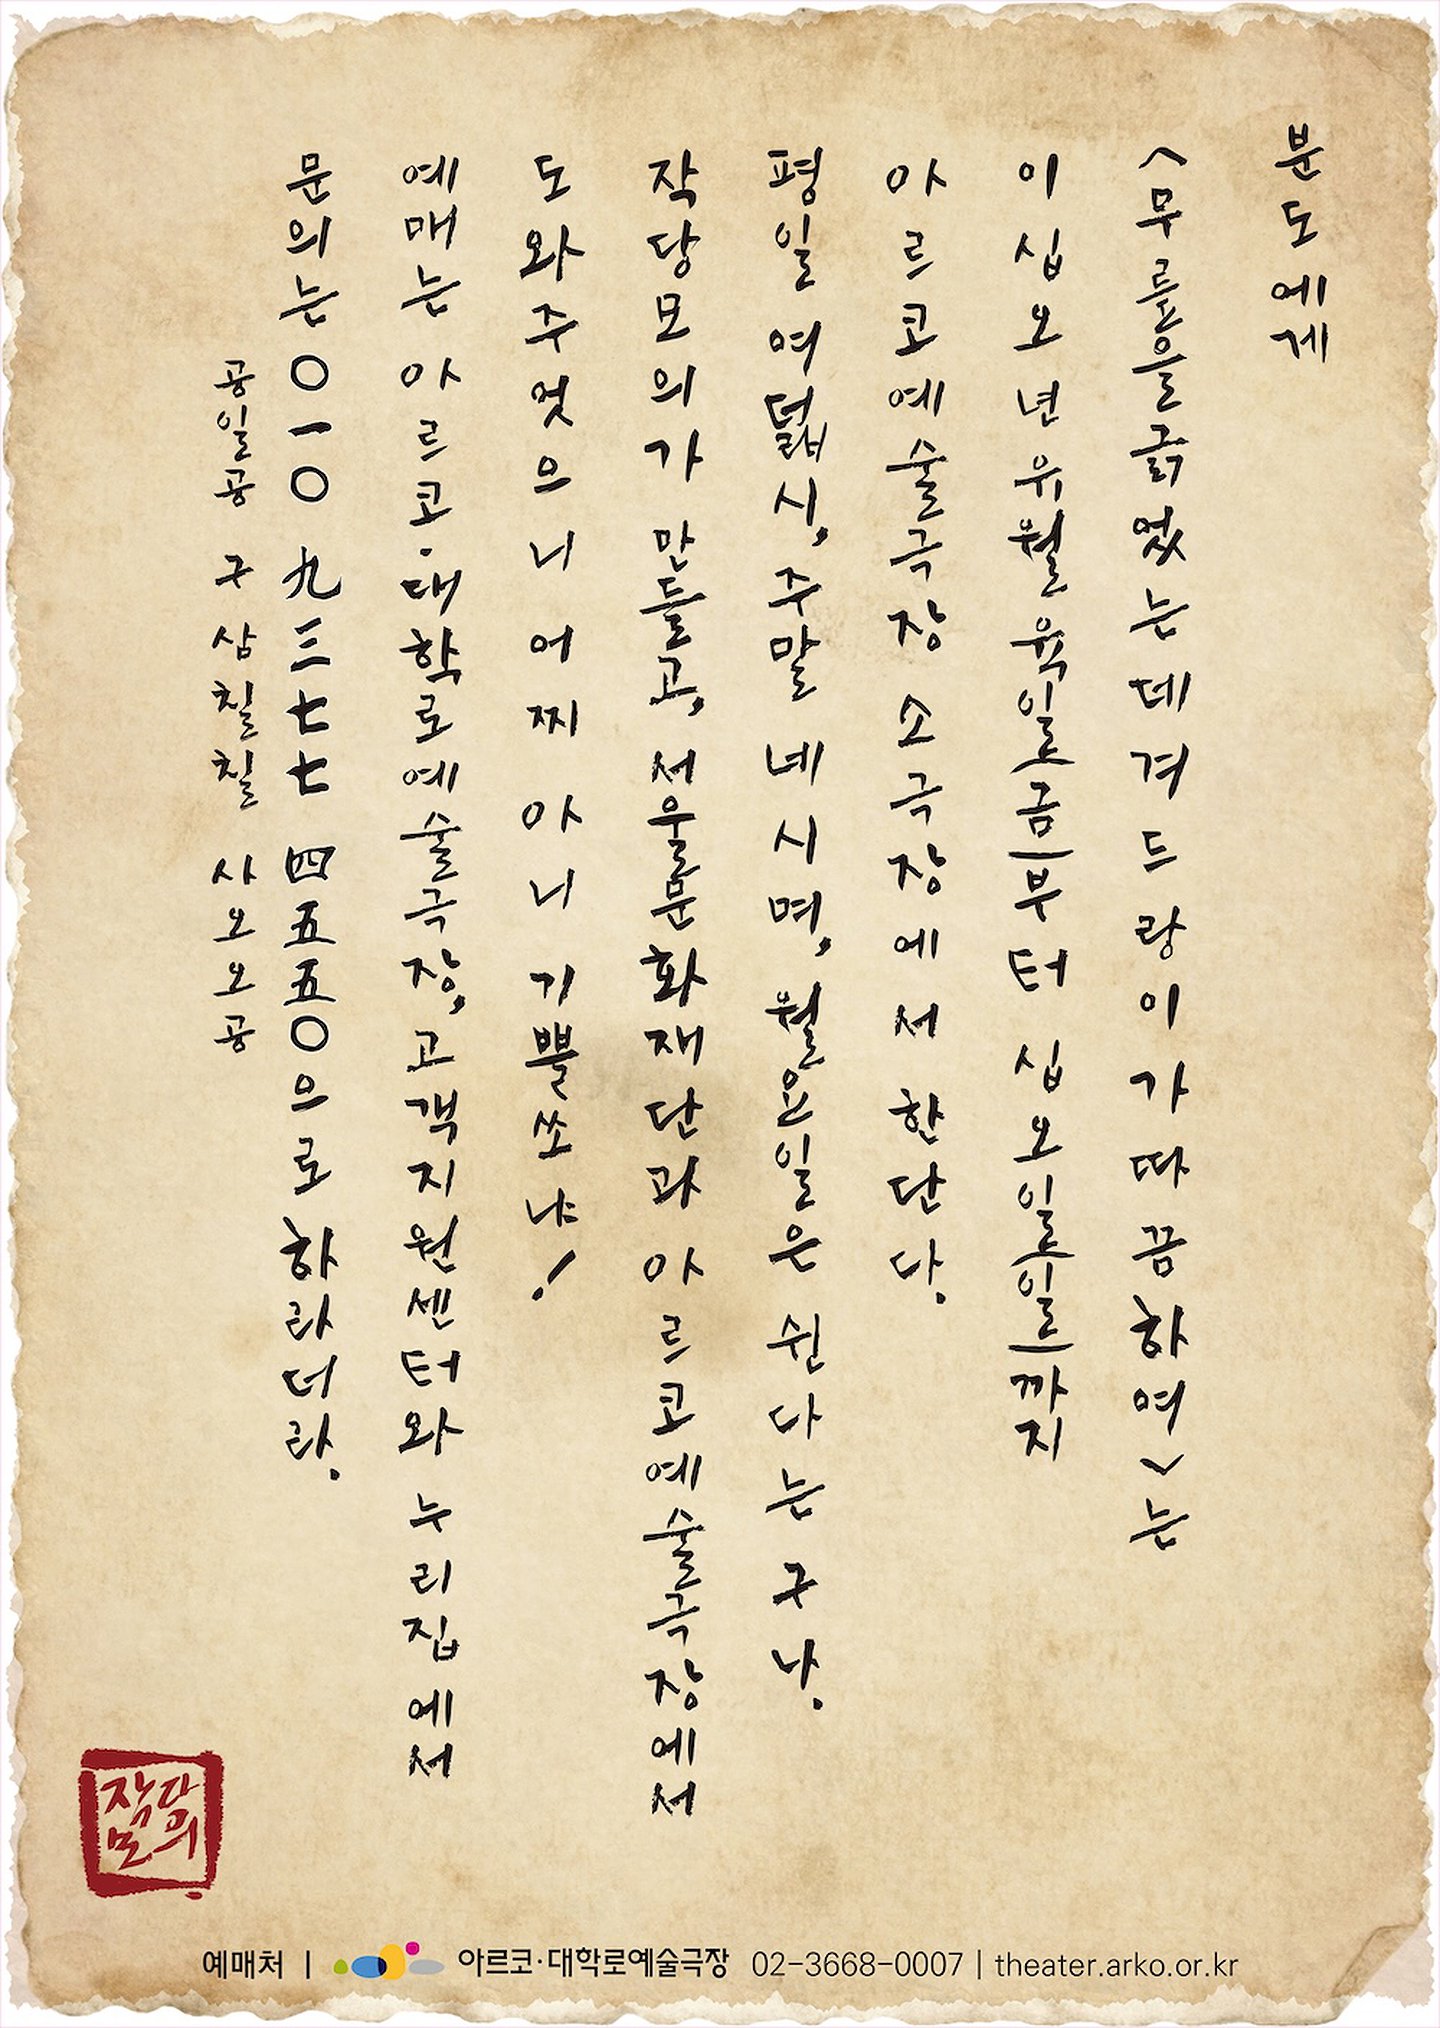 분도에게
<무릎을 긁었는데 겨드랑이가 따끔하여>는
이십오년 유월 육일(금)부터 십오일(일)까지
아르코예술극장 소극장에서 한단다.
평일 여덟시, 주말 네시며, 월요일은 쉰다는구나.
작당모의가 만들고, 서울문화재단과 아르코예술극장에서
도와주었으니 어찌 아니 기쁠쏘냐!
예매는 아르코·대학로예술극장, 고객지원센터와 누리집에서
문의는 〇一〇 九三七七 四五五〇으로 하라더라.
공일공 구삼칠칠 사오오공
작당모의
예매처 | 아르코·대학로예술극장 02-3668-0007 | theater.arko.or.kr